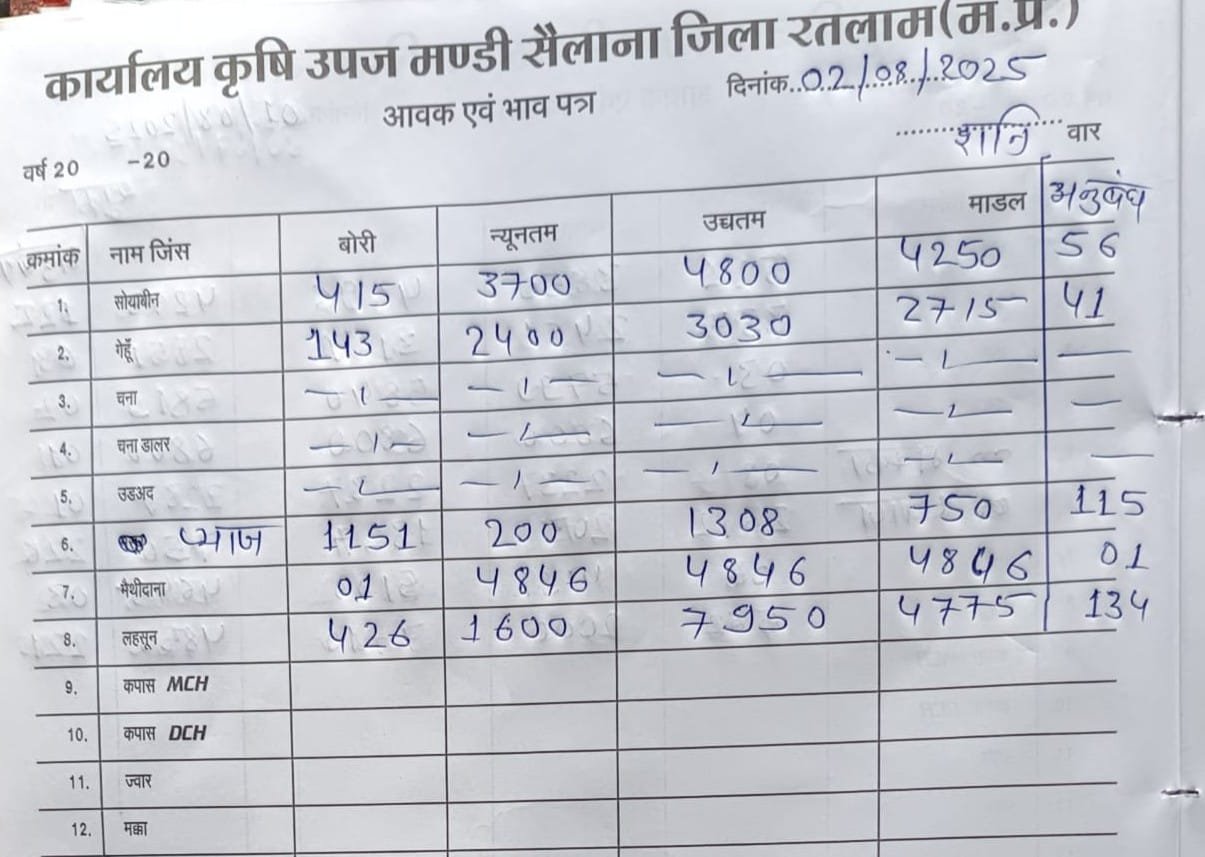 कार्यालय कृषि उपज मण्डी सैलाना जिला रतलाम(म.प्र.)
आवक एवं भाव पत्र
दिनांक..02/08/2025
शनि वार
वर्ष 20 -20
क्रमांक नाम जिंस बोरी न्यूनतम उच्चतम माडल अनुबंध
1. सोयाबीन 415 3700 4800 4250 56
2. गेहूँ 143 2400 3030 2715 41
3. चना —1— —1— —1— —1— —
4. चना डालर —1— —1— —1— —1— —
5. उडअद —1— —1— —1— —1— —
6. प्याज 1151 200 1308 750 115
7. मैथीदाना 01 4846 4846 4846 01
8. लहसून 426 1600 7950 4775 134
9. कपास MCH
10. कपास DCH
11. ज्वार
12. मक्का